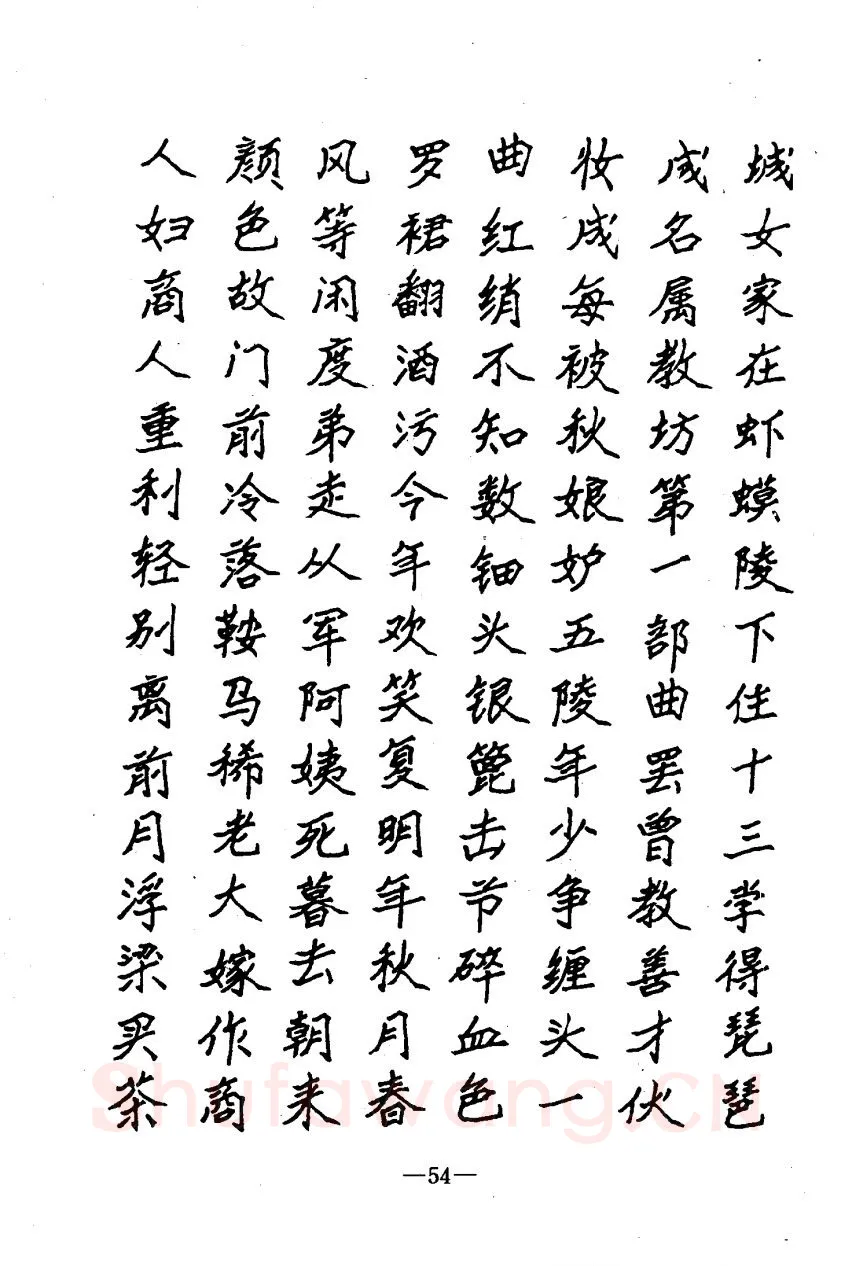 城女家在虾蟆陵下住十三学得琵琶
成名属教坊第一部曲罢曾教善才伏
妆成每被秋娘妒五陵年少争缠头一
曲红绡不知数钿头银篦击节碎血色
罗裙翻酒污今年欢笑复明年秋月春
风等闲度弟走从军阿姨死暮去朝来
颜色故门前冷落鞍马稀老大嫁作商
人妇商人重利轻别离前月浮梁买茶
—54—
Shufawang.CN